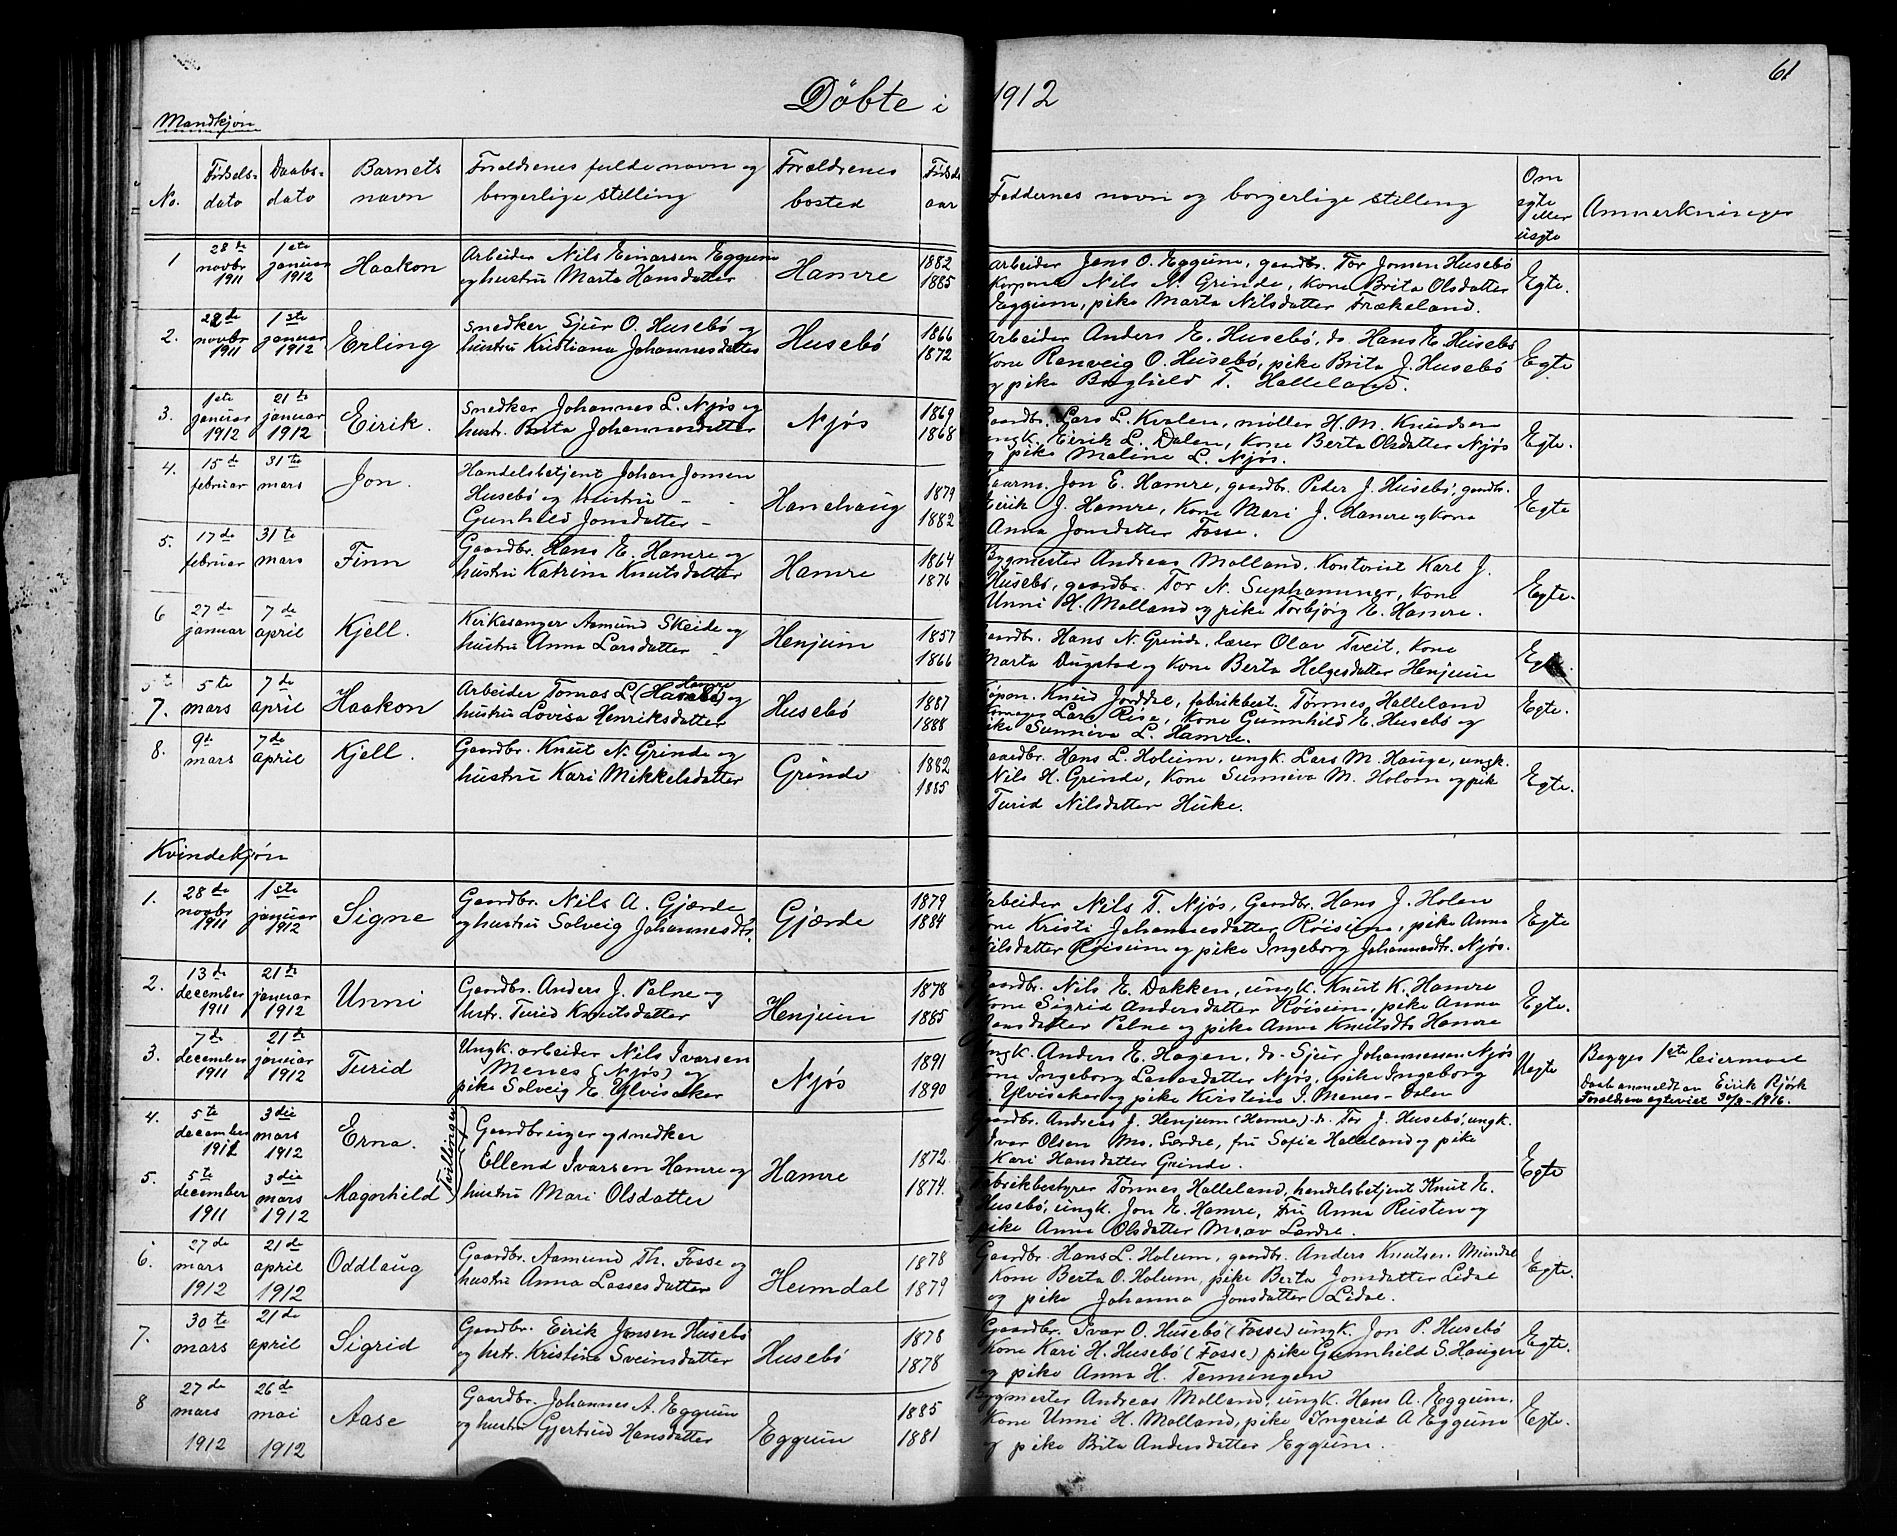 61
Döbte i 1912
Mandkjøn
No. Fødsels- dato Daabs- dato Barnets navn Forældrenes fulde navn og borgerlige stilling Forældrenes bosted Føds. aar Faddernes navn og borgerlige stilling Om egte eller uegte Anmerkninger
1 28de novbr 1911 1ste januar 1912 Haakon Arbeider Nils Einarsen Eggum og hustru Marta Hansdatter Hamre 1882 1885 Arbeider Jens O. Eggum, gaardbr. Tor Jonsen Husebö Nils N. Grinde, Kone Brita Olsdatter Eggum, pike Marta Nilsdatter Frækeland. Egte.
2. 22de novbr 1911 1ste januar 1912 Erling Snedker Sjur O. Husebö og hustru Kristiana Johannesdatter Husebö 1866 1872 Arbeider Anders E. Husebö, do. Hans E. Husebö Kone Renveig O. Husebö, pike Brita J. Husebö og pike T. Halleland. Egte
3. 1ste januar 1912 21te januar 1912 Eirik. Snedker Johannes L. Njös og hustr. Brita Johannesdatter Njös 1869 1868 Gaardbr. Lars L. Kvalen, møller H. M. Knudsen ungk. Eirik L. Dalen, Kone Berta Olsdatter Njös og pike Maline L. Njös. Egte.
4. 15de februar 31te mars Jon. Handelsbetjent Johan Jonsen Husebö og hustru Gunhild Jonsdatter Hanehaug 1879 1882 Jon E. Hamre, gaardbr. Peder J. Husebö, gaardbr. Eirik J. Hamre, Kone Mari J. Hamre og kone Anna Jonsdatter Fosse. Egte
5. 17de februar 31te mars Finn Gaardbr. Hans E. Hamre og hustru Katrina Knutsdatter Hamre 1864 1876 Bygmester Andreas Molland, Kontorist Karl J. Husebö, gaardbr. Tor N. Suphammer, Kone Unni H. Molland og pike Torbjörg E. Hamre. Egte.
6 27de januar 7de april Kjell. Kirkesanger Aamund Skeide og hustru Anna Larsdatter Henjum 1857 1866 Gaardbr. Hans N. Grinde, lærer Olav Tveit, Kone Marta Dugstad og Kone Berta Helgesdatter Henjum Egte.
7. 5te mars 7de april Haakon Arbeider Tomas L. Hamre og hustru Lovisa Henriksdatter Husebö 1887 1888 Knud Joddal, fabrikbest. Tönnes Halleland Lars Risa, Kone Gunnhild E. Husebö og pike Sunniva L. Hamre. Egte.
8. 9de mars 7de april Kjell. Gaardbr. Knut N. Grinde og hustru Kari Mikkelsdatter Grinde 1882 1885 Gaardbr. Hans L. Holum, ungk. Lars M. Hauge, ungk. Nils H. Grinde, Kone Sunniva M. Holum og pike Turid Nilsdatter Huke. Egte.
Kvindekjön
1. 28de novbr 1911 1ste januar 1912 Signe Gaardbr. Nils A. Gjærde og hustru Solveig Johannesdtr. Gjærde 1879 1884 Arbeider Nils T. Njös, Gaardbr. Hans J. Holen Kone Kristi Johannesdatter Röisum, pike Anna Nilsdatter Röisum og pike Ingeborg Johannesdtr. Njös. Egte
2. 13de december 1911 21te januar 1912 Unni Gaardbr. Anders J. Palne og hstr. Turid Knutsdatter Henjum 1878 1885 Gaardbr. Nils E. Dakken, ungk. Knut K. Hamre Kone Sigrid Andersdatter Röisum, pike Anna Palne og pike Anna Knutsdtr Hamre Egte.
3. 7de december 1911 21te januar 1912 Turid Ungk. arbeider Nils Ivarsen Menes (Njös) og pike Solveig E. Ylvisaker Njös 1891 1890 Ungk. Anders E. Hagen, do. Sjur Johannessen Njös Kone Ingeborg Larsdatter Njös, pike Ingeborg Ylvisaker og pike Kirstina I. Menes-Dalen Uegte Begges 1ste leiermaal Daab anmeldt av Eirik Forældrene egteviet 30/4-1916.
4. 5te december 1911 3die mars 1912 Erna. Tvillinger Gaardbruger og snedker Ellend Ivarsen Hamre og hustru Mari Olsdatter Hamre 1872. 1874. Gaardbr. Andreas J. Henjum (Hamre) do. Tor J. Husebö, ungk. Ivar Olsen Mo. Lærdal, fru Sofie Halleland og pike Kari Hansdatter Grinde. Egte
5. 5te december 1911 3die mars 1912 Magnhild Fabrikbestyrer Tönnes Halleland, handelsbetjent Knut E. Husebö, ungk. Jon E. Hamre, Fru Anna Rusten og pike Anna Olsdatter Mo, av Lærdal.
6. 27de mars 1912 21de april 1912 Oddlaug Gaardbr. Aamund Th. Fosse og hustru Anna Lassesdatter Heimdal 1878 1879 Gaardbr. Hans L. Holum, gaardbr. Anders Knutsen Mundal Kone Berta O. Holum, pike Berta Jonsdatter Lidal og pike Johanna Jonsdatter Lidal. Egte.
7. 30te mars 21de april Sigrid Gaardbr. Eirik Jonsen Husebö og hstr. Kristina Sveinsdatter Husebö 1878 1878 Gaardbr. Ivar O. Husebö (Fosse) ungk. Jon P. Husebö Kone Kari H. Husebö (Fosse) pike Gunnhild S. Haugen og pike Anna H. Tenningen Egte.
8 27de mars 1912 26de mai 1912 Aase Gaardbr. Johannes A. Eggum og hustru Gjertrud Hansdatter Eggum 1885 1881 Bygmester Andreas Molland, ungk. Hans A. Eggum. Kone Unni H. Molland, pike Ingerid A Eggum og pike Brita Andersdatter Eggum. Egte.